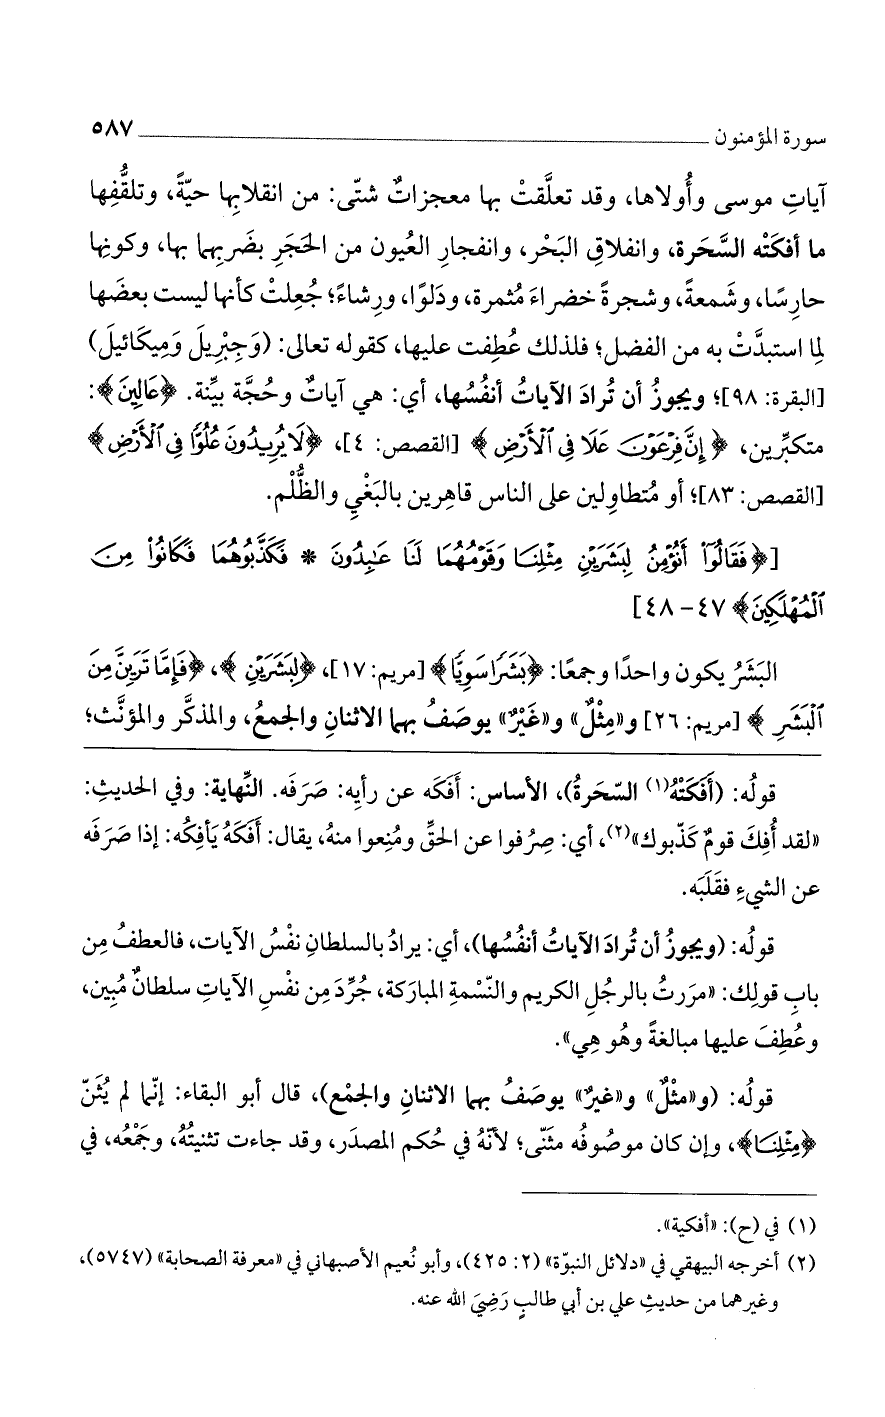 سورة المؤمنون ٥٨٧
آياتِ موسى وأُولاها، وقد تعلَّقتْ بها معجزاتٌ شتّى: من انقلابِها حيّةً، وتلقُّفِها
ما أفكَتْه السَّحَرة، وانفلاقِ البَحْر، وانفجارِ العُيون من الحَجَرِ بضَربِهما بها، وكونِها
حارسًا، وشَمعةً، وشجرةً خضراءَ مُثمرة، ودَلوًا، ورِشاءً؛ جُعِلتْ كأنها ليست بعضَها
لِما استبدَّتْ به من الفضل؛ فلذلك عُطِفت عليها، كقوله تعالى: (وَجِبْرِيلَ وَمِيكَائيلَ)
[البقرة: ٩٨]؛ ويجوزُ أن تُرادَ الآياتُ أنفُسُها، أي: هي آياتٌ وحُجَّة بيِّنة. ﴿عَالِينَ﴾:
متكبِّرين، ﴿إِنَّ فِرْعَوْنَ عَلَا فِى ٱلْأَرْضِ﴾ [القصص: ٤]، ﴿لَا يُرِيدُونَ عُلُوًّا فِى ٱلْأَرْضِ﴾
[القصص: ٨٣]؛ أو مُتطاوِلين على الناس قاهِرين بالبَغْيِ والظُّلْم.
[﴿فَقَالُوٓا۟ أَنُؤْمِنُ لِبَشَرَيْنِ مِثْلِنَا وَقَوْمُهُمَا لَنَا عَـٰبِدُونَ * فَكَذَّبُوهُمَا فَكَانُوا۟ مِنَ
ٱلْمُهْلَكِينَ﴾ ٤٧ - ٤٨]
البَشَرُ يكون واحدًا وجمعًا: ﴿بَشَرًا سَوِيًّا﴾ [مريم: ١٧]، ﴿لِبَشَرَيْنِ﴾، ﴿فَإِمَّا تَرَيِنَّ مِنَ
ٱلْبَشَرِ﴾ [مريم: ٢٦] و«مِثْلٌ» و«غَيْرٌ» يوصَفُ بهما الاثنانِ والجمعُ، والمذكَّر والمؤنَّث؛
قولُه: (أَفَكَتْهُ(١) السّحَرةُ)، الأساس: أَفَكَه عن رأيِه: صَرَفَه. النِّهاية: وفي الحديثِ:
«لقد أُفِكَ قومٌ كَذّبوك»(٢)، أي: صِرُفوا عن الحقِّ ومُنِعوا منهُ، يقال: أَفَكَهُ يَأفِكُه: إذا صَرَفَه
عن الشيءِ فقَلَبَه.
قولُه: (ويجوزُ أن تُرادَ الآياتُ أنفُسُها)، أي: يرادُ بالسلطانِ نفْسُ الآيات، فالعطفُ مِن
بابِ قولِك: «مرَرتُ بالرجُلِ الكريم والنّسْمةِ المبارَكة، جُرِّدَ مِن نفْسِ الآياتِ سلطانٌ مُبِين،
وعُطِفَ عليها مبالغةً وهُو هِي».
قولُه: (و«مثْلٌ» و«غيرٌ» يوصَفُ بهما الاثنانِ والجمْع)، قال أبو البقاء: إنّما لم يُثَنّ
﴿مِثْلِنَا﴾، وإن كان موصُوفُه مثَنّى؛ لأنّهُ في حُكم المصدَر، وقد جاءت تثنيتُهُ، وجَمْعُه، في
(١) في (ح): «أفكية».
(٢) أخرجه البيهقي في «دلائل النبوّة» (٢: ٤٢٥)، وأبو نُعيم الأصبهاني في «معرفة الصحابة» (٥٧٤٧)،
وغيرهما من حديثِ علي بن أبي طالبٍ رَضِيَ الله عنه.